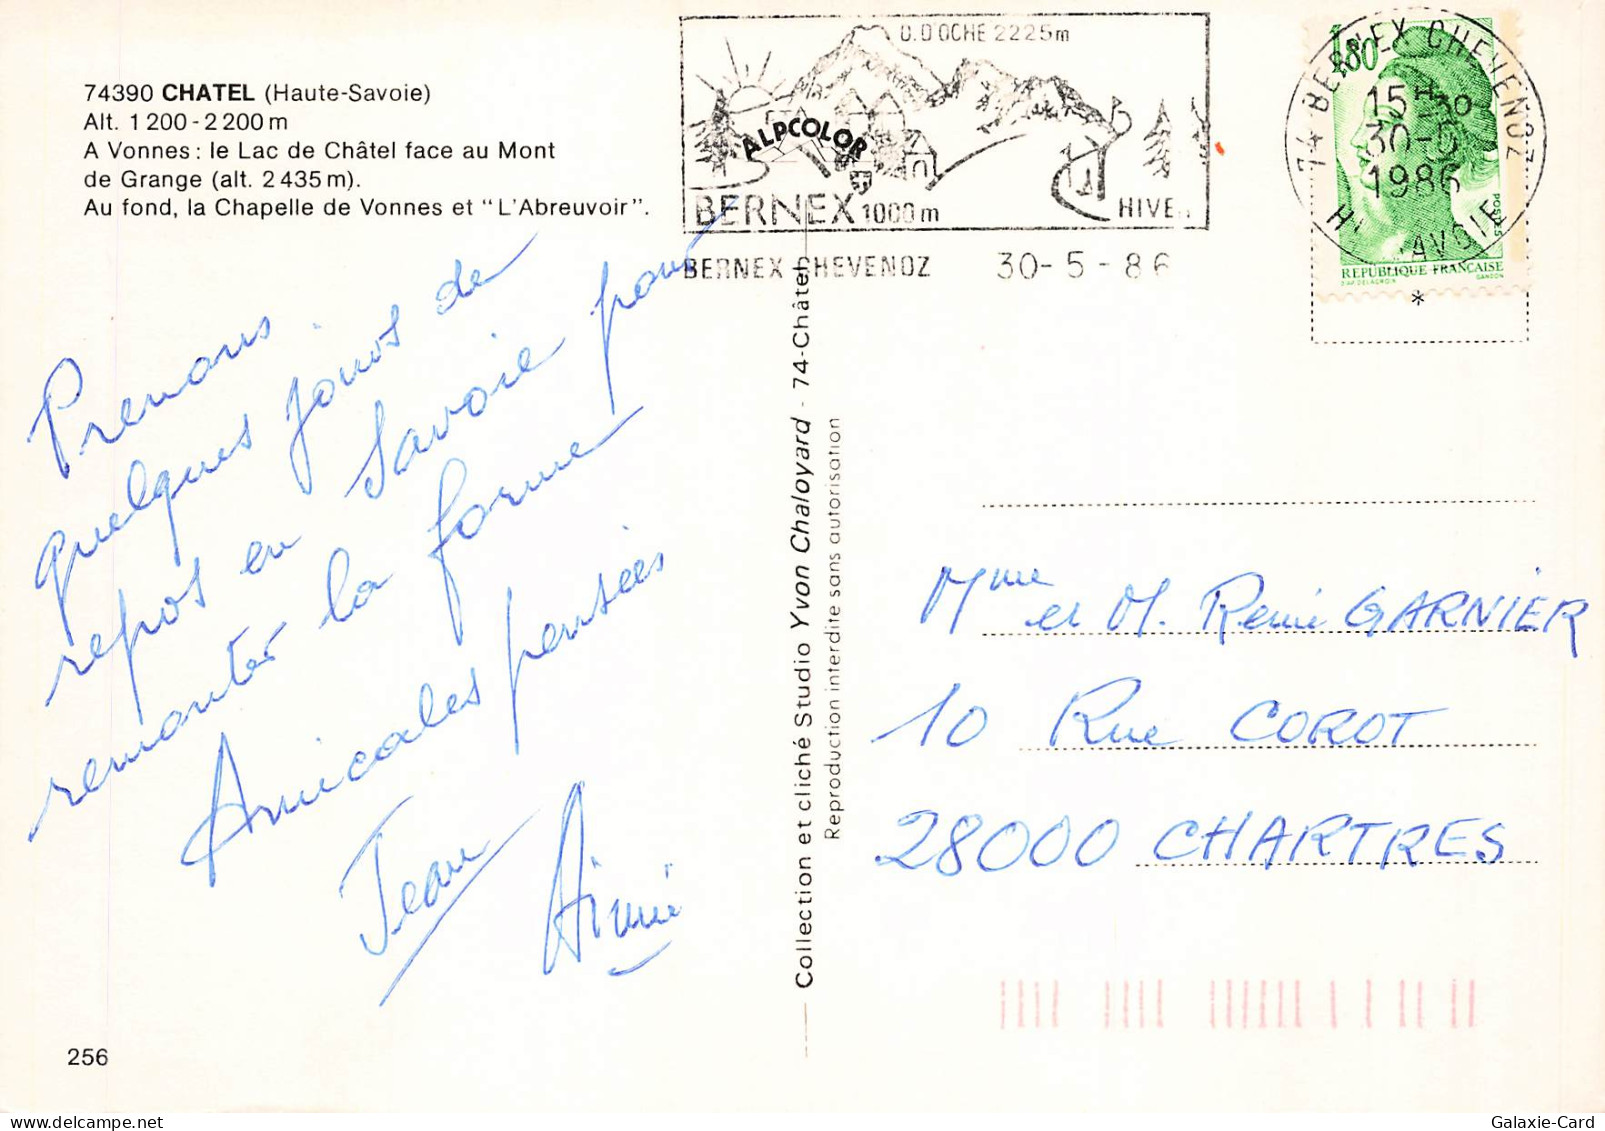 74390 CHATEL (Haute-Savoie)
Alt. 1 200 - 2 200 m
A Vonnes : le Lac de Châtel face au Mont
de Grange (alt. 2 435 m).
Au fond, la Chapelle de Vonnes et "L'Abreuvoir".
D.D'OCHE 2225m
ALPCOLOR
BERNEX 1000 m
HIVE
BERNEX CHEVENOZ 30-5-86
1,80
74 BERNEX CHEVENOZ
15H30
30-5
1986
AVOIE
POSTES
REPUBLIQUE FRANÇAISE
D'AP. DELACROIX GANDON
*
Prenons
quelques jours de
repos en Savoie pour
remonter la forme
Amicales pensées
Jean Aimé
Collection et cliché Studio Yvon Chaloyard - 74-Châtel
Reproduction interdite sans autorisation
Mme et M. René GARNIER
10 Rue COROT
28000 CHARTRES
256
Galaxie-Card